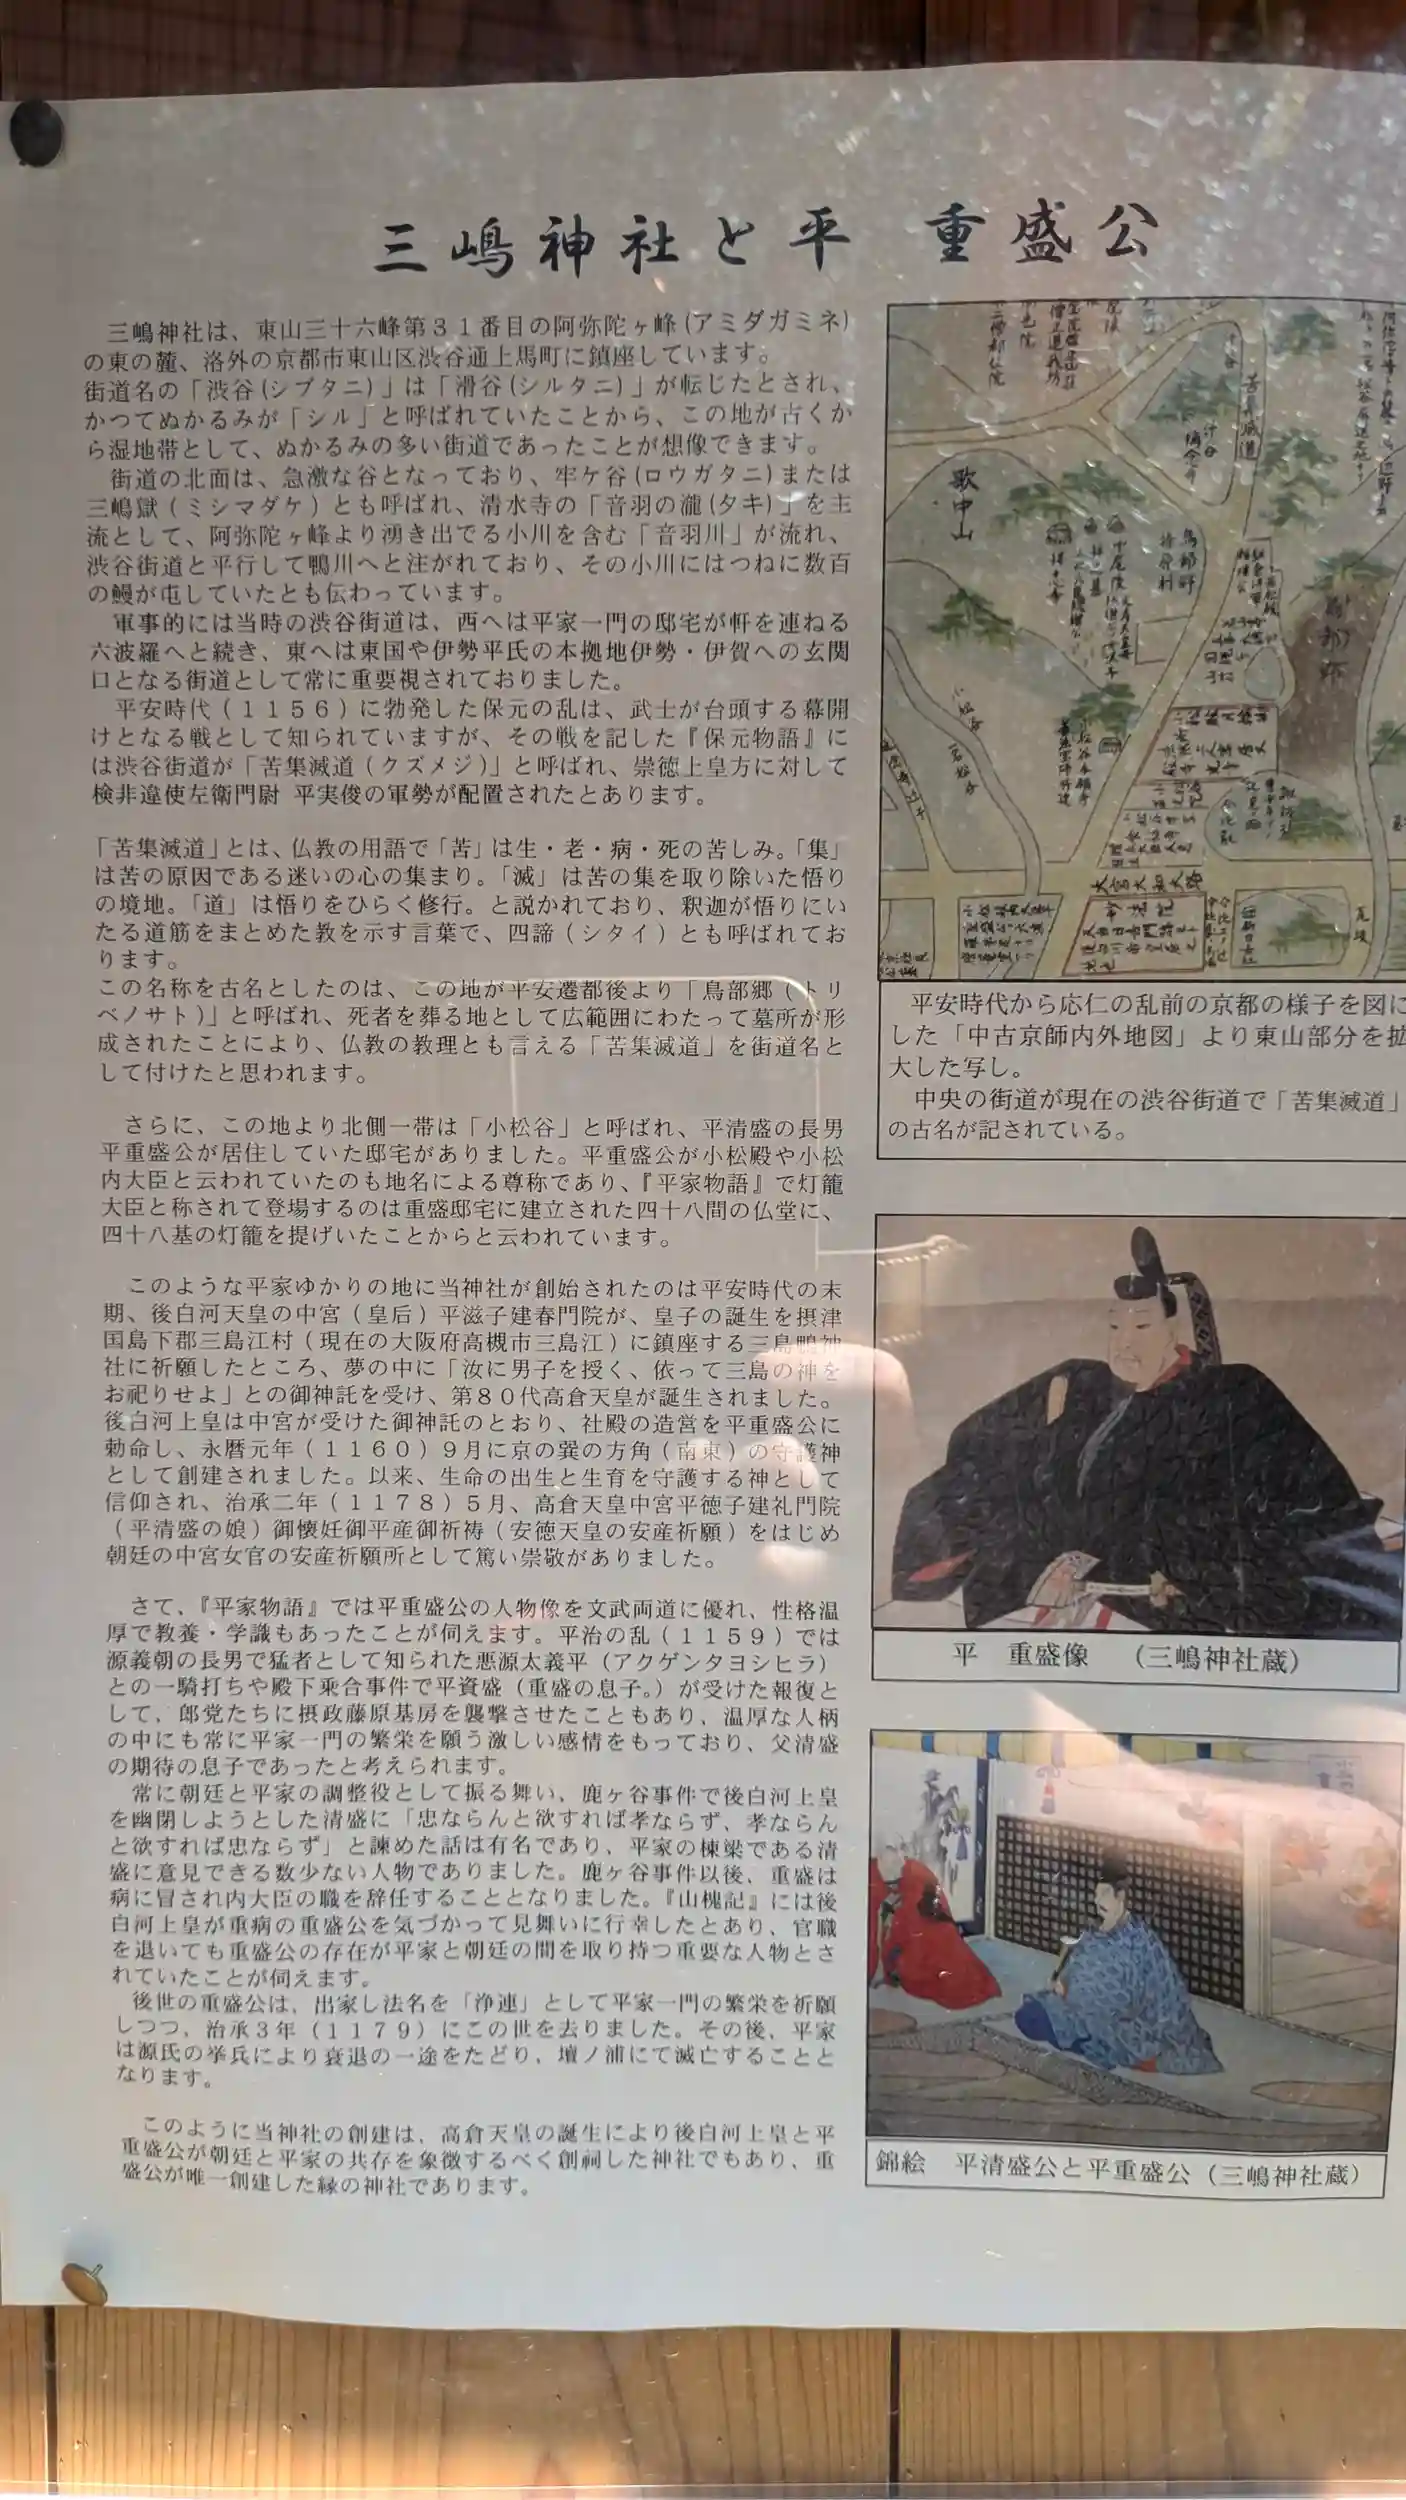 三嶋神社と平 重盛公
三嶋神社は、東山三十六峰第31番目の阿弥陀ヶ峰(アミダガミネ)
の東の麓、洛外の京都市東山区渋谷通上馬町に鎮座しています。
街道名の「渋谷(シブタニ)」は「滑谷(シルタニ)」が転じたとされ、
かつてぬかるみが「シル」と呼ばれていたことから、この地が古くか
ら湿地帯として、ぬかるみの多い街道であったことが想像できます。
街道の北面は、急激な谷となっており、牢ケ谷(ロウガタニ)または
三嶋獄(ミシマダケ)とも呼ばれ、清水寺の「音羽の瀧(タキ)」を主
流として、阿弥陀ヶ峰より湧き出でる小川を含む「音羽川」が流れ、
渋谷街道と平行して鴨川へと注がれており、その小川にはつねに数百
の鰻が屯していたとも伝わっています。
軍事的には当時の渋谷街道は、西へは平家一門の邸宅が軒を連ねる
六波羅へと続き、東へは東国や伊勢平氏の本拠地伊勢・伊賀への玄関
口となる街道として常に重要視されておりました。
平安時代(1156)に勃発した保元の乱は、武士が台頭する幕開
けとなる戦として知られていますが、その戦を記した『保元物語』に
は渋谷街道が「苦集滅道(クズメジ)」と呼ばれ、崇徳上皇方に対して
検非違使左衛門尉 平実俊の軍勢が配置されたとあります。
「苦集滅道」とは、仏教の用語で「苦」は生・老・病・死の苦しみ。「集」
は苦の原因である迷いの心の集まり。「滅」は苦の集を取り除いた悟り
の境地。「道」は悟りをひらく修行。と説かれており、釈迦が悟りにい
たる道筋をまとめた教を示す言葉で、四諦(シタイ)とも呼ばれてお
ります。
この名称を古名としたのは、この地が平安遷都後より「鳥部郷(トリ
ベノサト)」と呼ばれ、死者を葬る地として広範囲にわたって墓所が形
成されたことにより、仏教の教理とも言える「苦集滅道」を街道名と
して付けたと思われます。
さらに、この地より北側一帯は「小松谷」と呼ばれ、平清盛の長男
平重盛公が居住していた邸宅がありました。平重盛公が小松殿や小松
内大臣と云われていたのも地名による尊称であり、『平家物語』で灯籠
大臣と称されて登場するのは重盛邸宅に建立された四十八間の仏堂に、
四十八基の灯籠を提げいたことからと云われています。
このような平家ゆかりの地に当神社が創始されたのは平安時代の末
期、後白河天皇の中宮(皇后)平滋子建春門院が、皇子の誕生を摂津
国島下郡三島江村(現在の大阪府高槻市三島江)に鎮座する三島鴨神
社に祈願したところ、夢の中に「汝に男子を授く、依って三島の神を
お祀りせよ」との御神託を受け、第80代高倉天皇が誕生されました。
後白河上皇は中宮が受けた御神託のとおり、社殿の造営を平重盛公に
勅命し、永暦元年(1160)9月に京の巽の方角(南東)の守護神
として創建されました。以来、生命の出生と生育を守護する神として
信仰され、治承二年(1178)5月、高倉天皇中宮平徳子建礼門院
(平清盛の娘)御懐妊御平産御祈祷(安徳天皇の安産祈願)をはじめ
朝廷の中宮女官の安産祈願所として篤い崇敬がありました。
さて、『平家物語』では平重盛公の人物像を文武両道に優れ、性格温
厚で教養・学識もあったことが伺えます。平治の乱(1159)では
源義朝の長男で猛者として知られた悪源太義平(アクゲンタヨシヒラ)
との一騎打ちや殿下乗合事件で平資盛(重盛の息子。)が受けた報復と
して、郎党たちに摂政藤原基房を襲撃させたこともあり、温厚な人柄
の中にも常に平家一門の繁栄を願う激しい感情をもっており、父清盛
の期待の息子であったと考えられます。
常に朝廷と平家の調整役として振る舞い、鹿ヶ谷事件で後白河上皇
を幽閉しようとした清盛に「忠ならんと欲すれば孝ならず、孝ならん
と欲すれば忠ならず」と諫めた話は有名であり、平家の棟梁である清
盛に意見できる数少ない人物でありました。鹿ヶ谷事件以後、重盛は
病に冒され内大臣の職を辞任することとなりました。『山槐記』には後
白河上皇が重病の重盛公を気づかって見舞いに行幸したとあり、官職
を退いても重盛公の存在が平家と朝廷の間を取り持つ重要な人物とさ
れていたことが伺えます。
後世の重盛公は、出家し法名を「浄連」として平家一門の繁栄を祈願
しつつ、治承3年(1179)にこの世を去りました。その後、平家
は源氏の挙兵により衰退の一途をたどり、壇ノ浦にて滅亡することと
なります。
このように当神社の創建は、高倉天皇の誕生により後白河上皇と平
重盛公が朝廷と平家の共存を象徴するべく創祠した神社でもあり、重
盛公が唯一創建した縁の神社であります。
歌中山
苦集滅道
大宮大和大路
平安時代から応仁の乱前の京都の様子を図に
した「中古京師内外地図」より東山部分を拡
大した写し。
中央の街道が現在の渋谷街道で「苦集滅道」
の古名が記されている。
平 重盛像 (三嶋神社蔵)
錦絵 平清盛公と平重盛公(三嶋神社蔵)